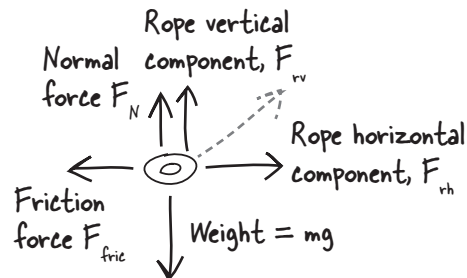 Rope vertical
component, F rv
Normal
force F N
Rope horizontal
component, F rh
Friction
force F fric
Weight = mg